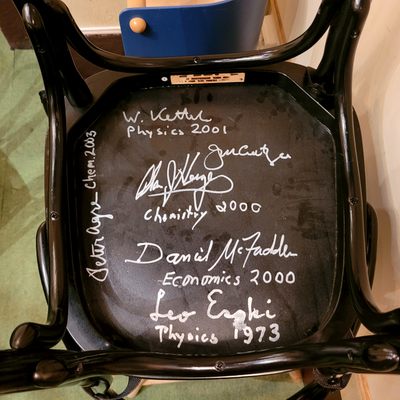 W. Kettel
Physics 2001
Chemistry 2000
Daniel McFadden
Economics 2000
Leo Esaki
Physics 1973
Peter Agre Chem. 2003